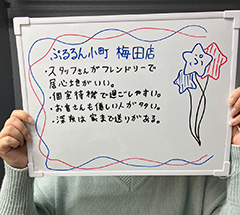 ぷるるん小町 梅田店
・スタッフさんがフレンドリーで
居心地がいい。
・個室待機で過ごしやすい。
・お客さんも優しい人が多い。
・深夜は家まで送りがある。